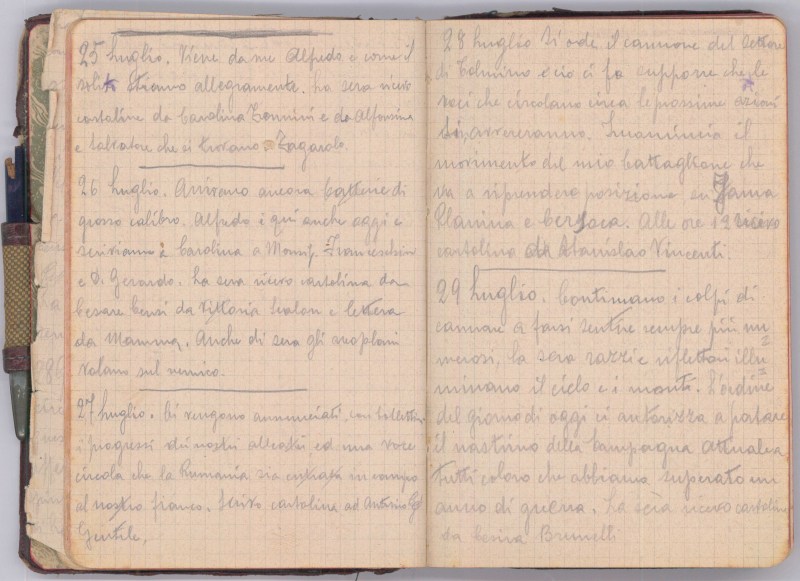 25 Luglio. Viene da me Alfredo e come il
solito stiamo allegramente. La sera ricevo
cartoline da Carolina Zennini e da Alfonsina
e Salvatore che si trovano a Zagarolo.
26 Luglio. Arrivano ancora batterie di
grosso calibro. Alfredo è qui anche oggi e
scriviamo a Carolina a Monsig. Franceschini
e D. Gerardo. La sera ricevo cartolina da
Cesare Censi da Vittoria e lettera
da Mamma. Anche di sera gli aeroplani
volano sul nemico.
27 Luglio. Ci vengono annunciati con bollettini
i progressi dei nostri alleati ed una voce
circola che la Rumania sia entrata in campo
al nostro fianco. Scrivo cartolina ad Antonino
Gentile.
28 Luglio Si ode il cannone del settore
di Tolmino e ciò ci fa supporre che le
voci che circolano circa le prossime azioni
si avvereranno. Incomincia il
movimento del mio battaglione che
va a riprendere posizione su Jama
Planina e Bersoca. Alle ore 12 ricevo
cartolina da Stanislao Vincenti.
29 Luglio. Continuano i colpi di
cannone a farsi sentire sempre più nu
merosi, la sera razzi e riflettori illu
minano il cielo e i monti. L'ordine
del giorno di oggi ci autorizza a portare
il nastrino della Campagna attuale a
tutti coloro che abbiamo superato un
anno di guerra. La sera ricevo cartolina
da Cesira Brunelli